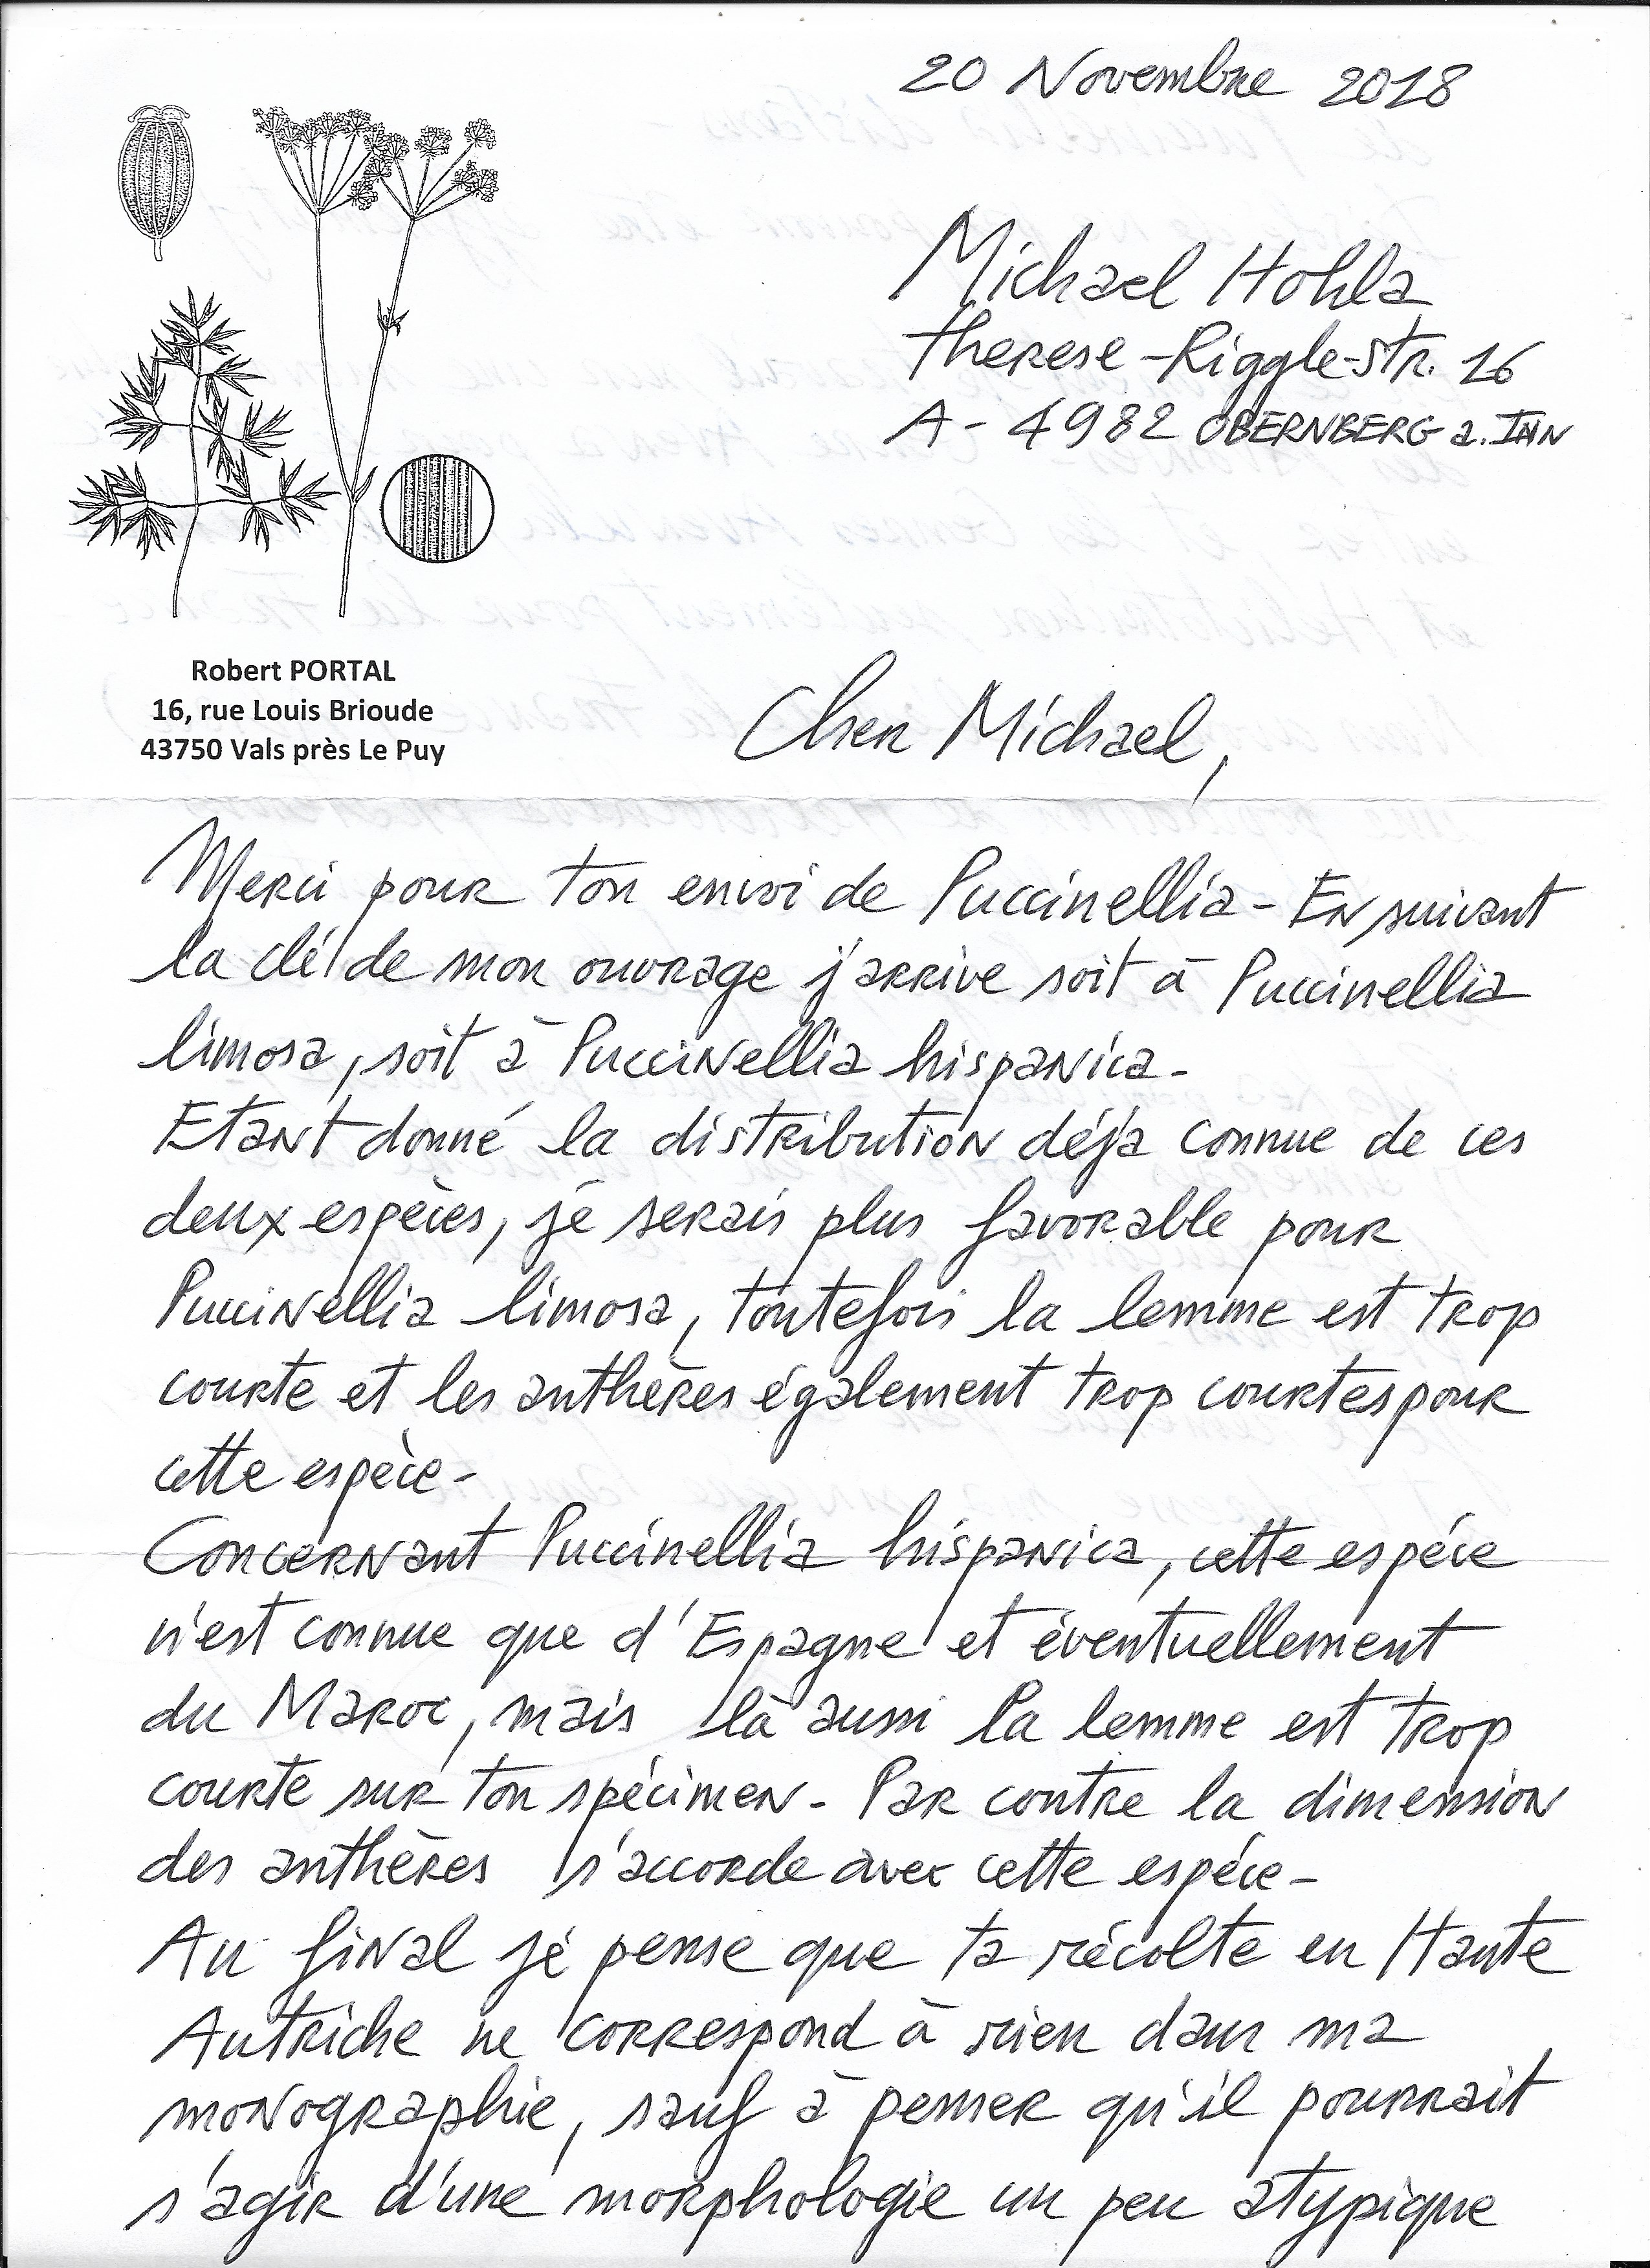 20 Novembre 2018
Michael Hohla
therese-Riggle-Str. 16
A-4982 OBERNBERG a. INN
Robert PORTAL
16, rue Louis Brioude
43750 Vals près Le Puy
Cher Michael,
Merci pour ton envoi de Puccinellia - En suivant
la clé de mon ouvrage j'arrive soit à Puccinellia
limosa, soit à Puccinellia hispanica -
Etant donné la distribution déja connue de ces
deux espèces, je serais plus favorable pour
Puccinellia limosa, toutefois la lemme est trop
courte et les anthères également trop courtes pour
cette espèce -
Concernant Puccinellia hispanica, cette espèce
n'est connue que d'Espagne et éventuellement
du Maroc, mais là aussi la lemme est trop
courte sur ton spécimen - Par contre la dimension
des anthères s'accorde avec cette espèce -
Au final je pense que ta récolte en Haute
Autriche ne correspond à rien dans ma
monographie, sauf à penser qu'il pourrait
s'agir d'une morphologie un peu atypique